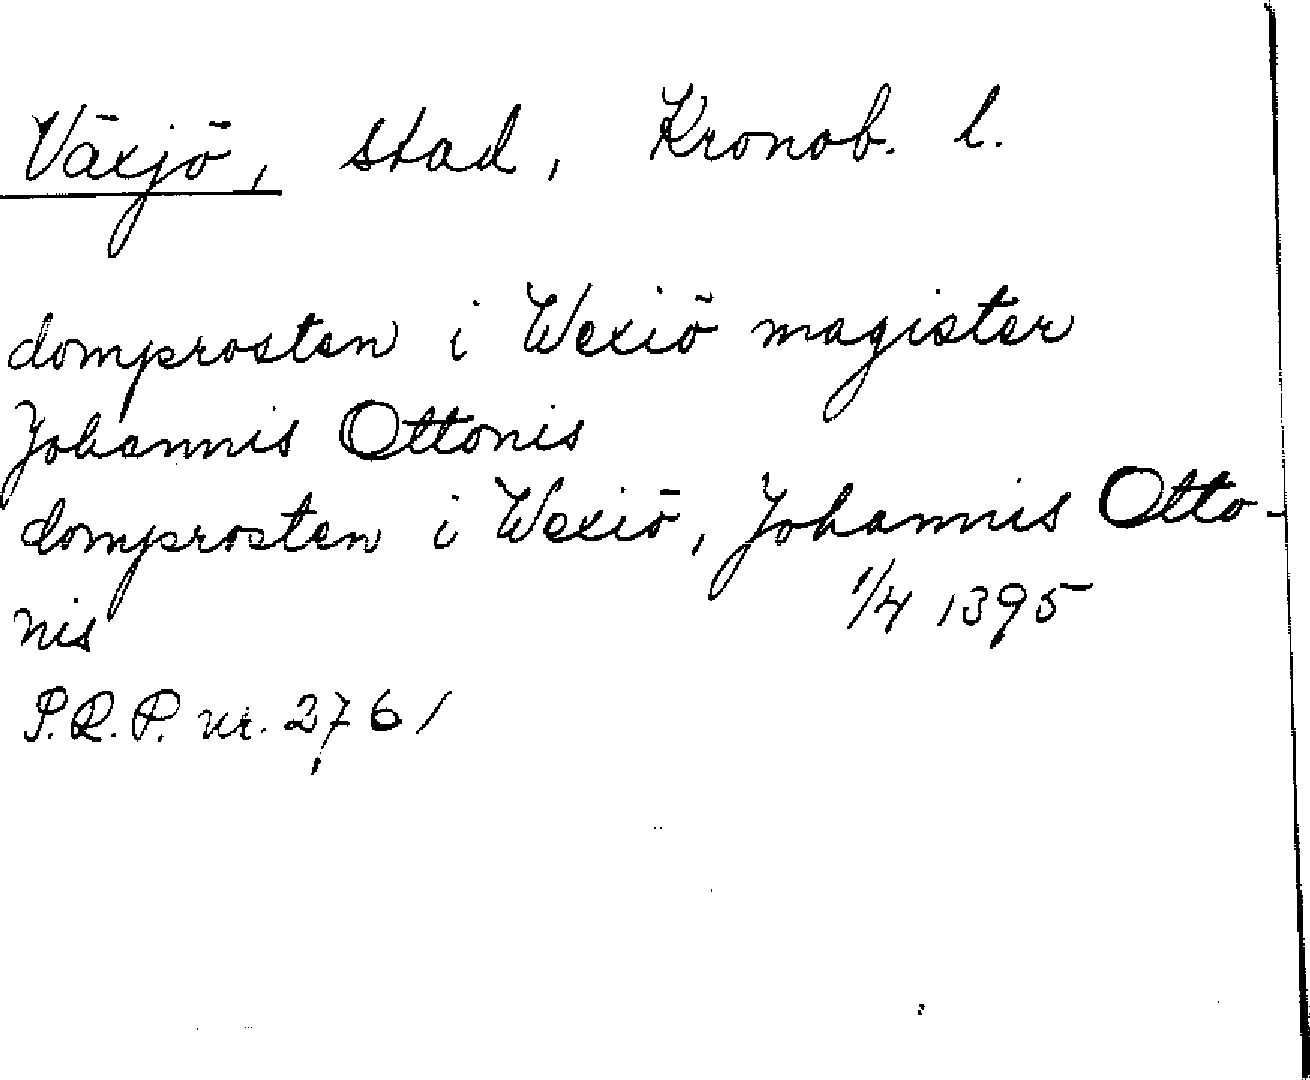 Växjö, stad, Kronob. l.
domprosten i Wexiö magister
Johannis Ottonis
domprosten i Wexiö, Johannis Otto-
nis 1/4 1395
P.R.P. nr. 2761